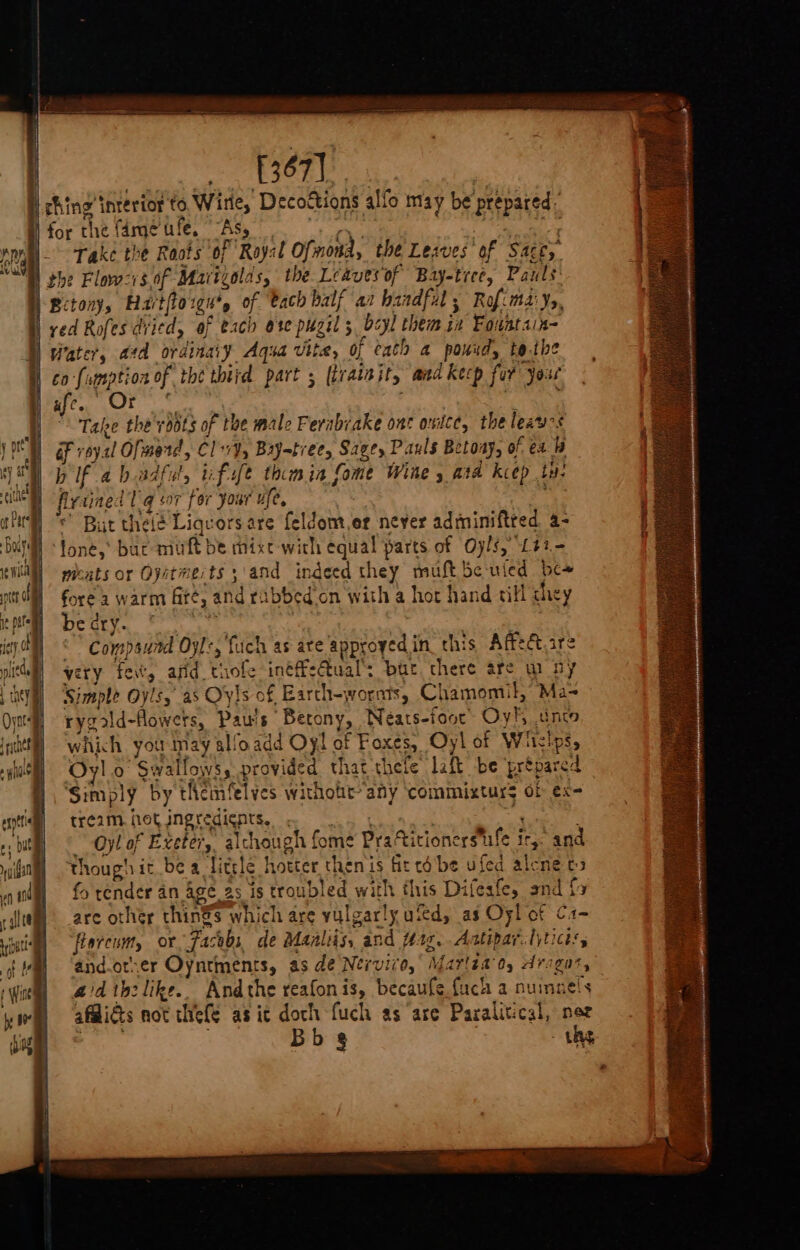 [367]
thing interiot to Wine, Decoctions alſo may be prepared
for the ſame uſe. As,
Take the Roots of Royal Oſmond, the Leaves of Sage,
the Flowers of Marigolds, the Leaves of Bay-tree, Pauls
Betony, Hartſtongue, of each half an handful; Roſemary,
red Roſes dried, of each one pugil; boyl them in Fountain-
Water, and ordinary Aqua vitæ, of each a pound, to the
conſumption of the third part; ſtrain it, and keep for your
uſe. Or
Take the roots of the male Fernbrake one ounce, the leaves
of royal Oſmond, Clary, Bay-tree, Sage, Pauls Betony, of each
half a handful, infuſe them in ſome Wine, and keep the
ſtrained Liquor for your uſe.
But theſe Liquors are ſeldom or never adminiſtred a-
lone, but muſt be mixt with equal parts of Oyls, Lini-
ments or Oyntments; and indeed they muſt be uſed be-
fore a warm fire, and rubbed on with a hot hand till they
be dry.
Compound Oyls, ſuch as are approved in this Affect, are
very few, and thoſe ineffectual: but there are many
Simple Oyls, as Oyls of Earth-worms, Chamomil, Ma-
rygold-flowers, Pauls Betony, Neats-foot Oyl, unto
which you may alſo add Oyl of Foxes, Oyl of Whelps,
Oyl o Swallows, provided that theſe laſt be prepared
Simply by themſelves without any commixture of ex-
tream hot ingredients.
Oyl of Exeter, although ſome Practitioners uſe it, and
though it be a little hotter then is fit to be uſed alone to
ſo tender an age as is troubled with this Diſeaſe, and ſo
are other things which are vulgarly uſed, as Oyl of Ca-
ſtoreum, or Jacobi de Manliis, and Mag. Antiparalyticus,
and other Oyntments, as de Nervino, Martiato, Aragon,
and the like. And the reaſon is, becauſe ſuch a numneſs
afflicts not theſe as it doth ſuch as are Paralitical, nor
Bb 3 the